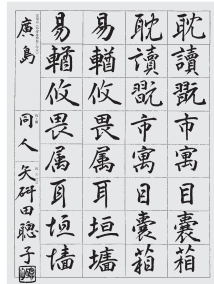 耽讀翫市寓目囊箱
耽讀翫市寓目囊箱
易輶攸畏属耳垣墻
易輶攸畏属耳垣墻
廣島 同人 矢 田聰子